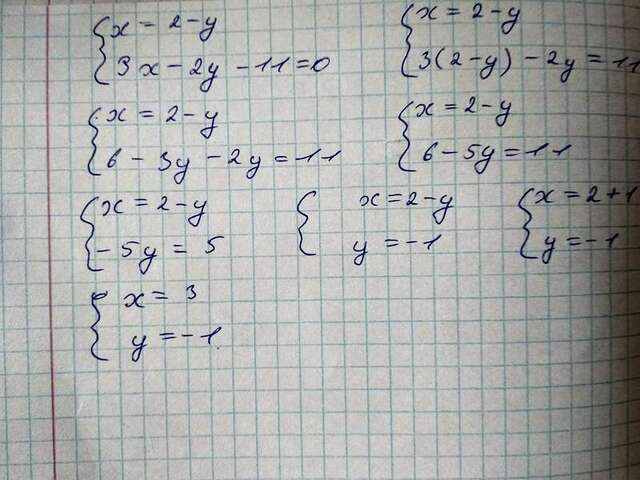 x = 2 - y
3x - 2y - 11 = 0
x = 2 - y
3(2 - y) - 2y = 11
x = 2 - y
6 - 3y - 2y = 11
x = 2 - y
6 - 5y = 11
x = 2 - y
- 5y = 5
x = 2 - y
y = -1
x = 2 + 1
y = -1
x = 3
y = -1